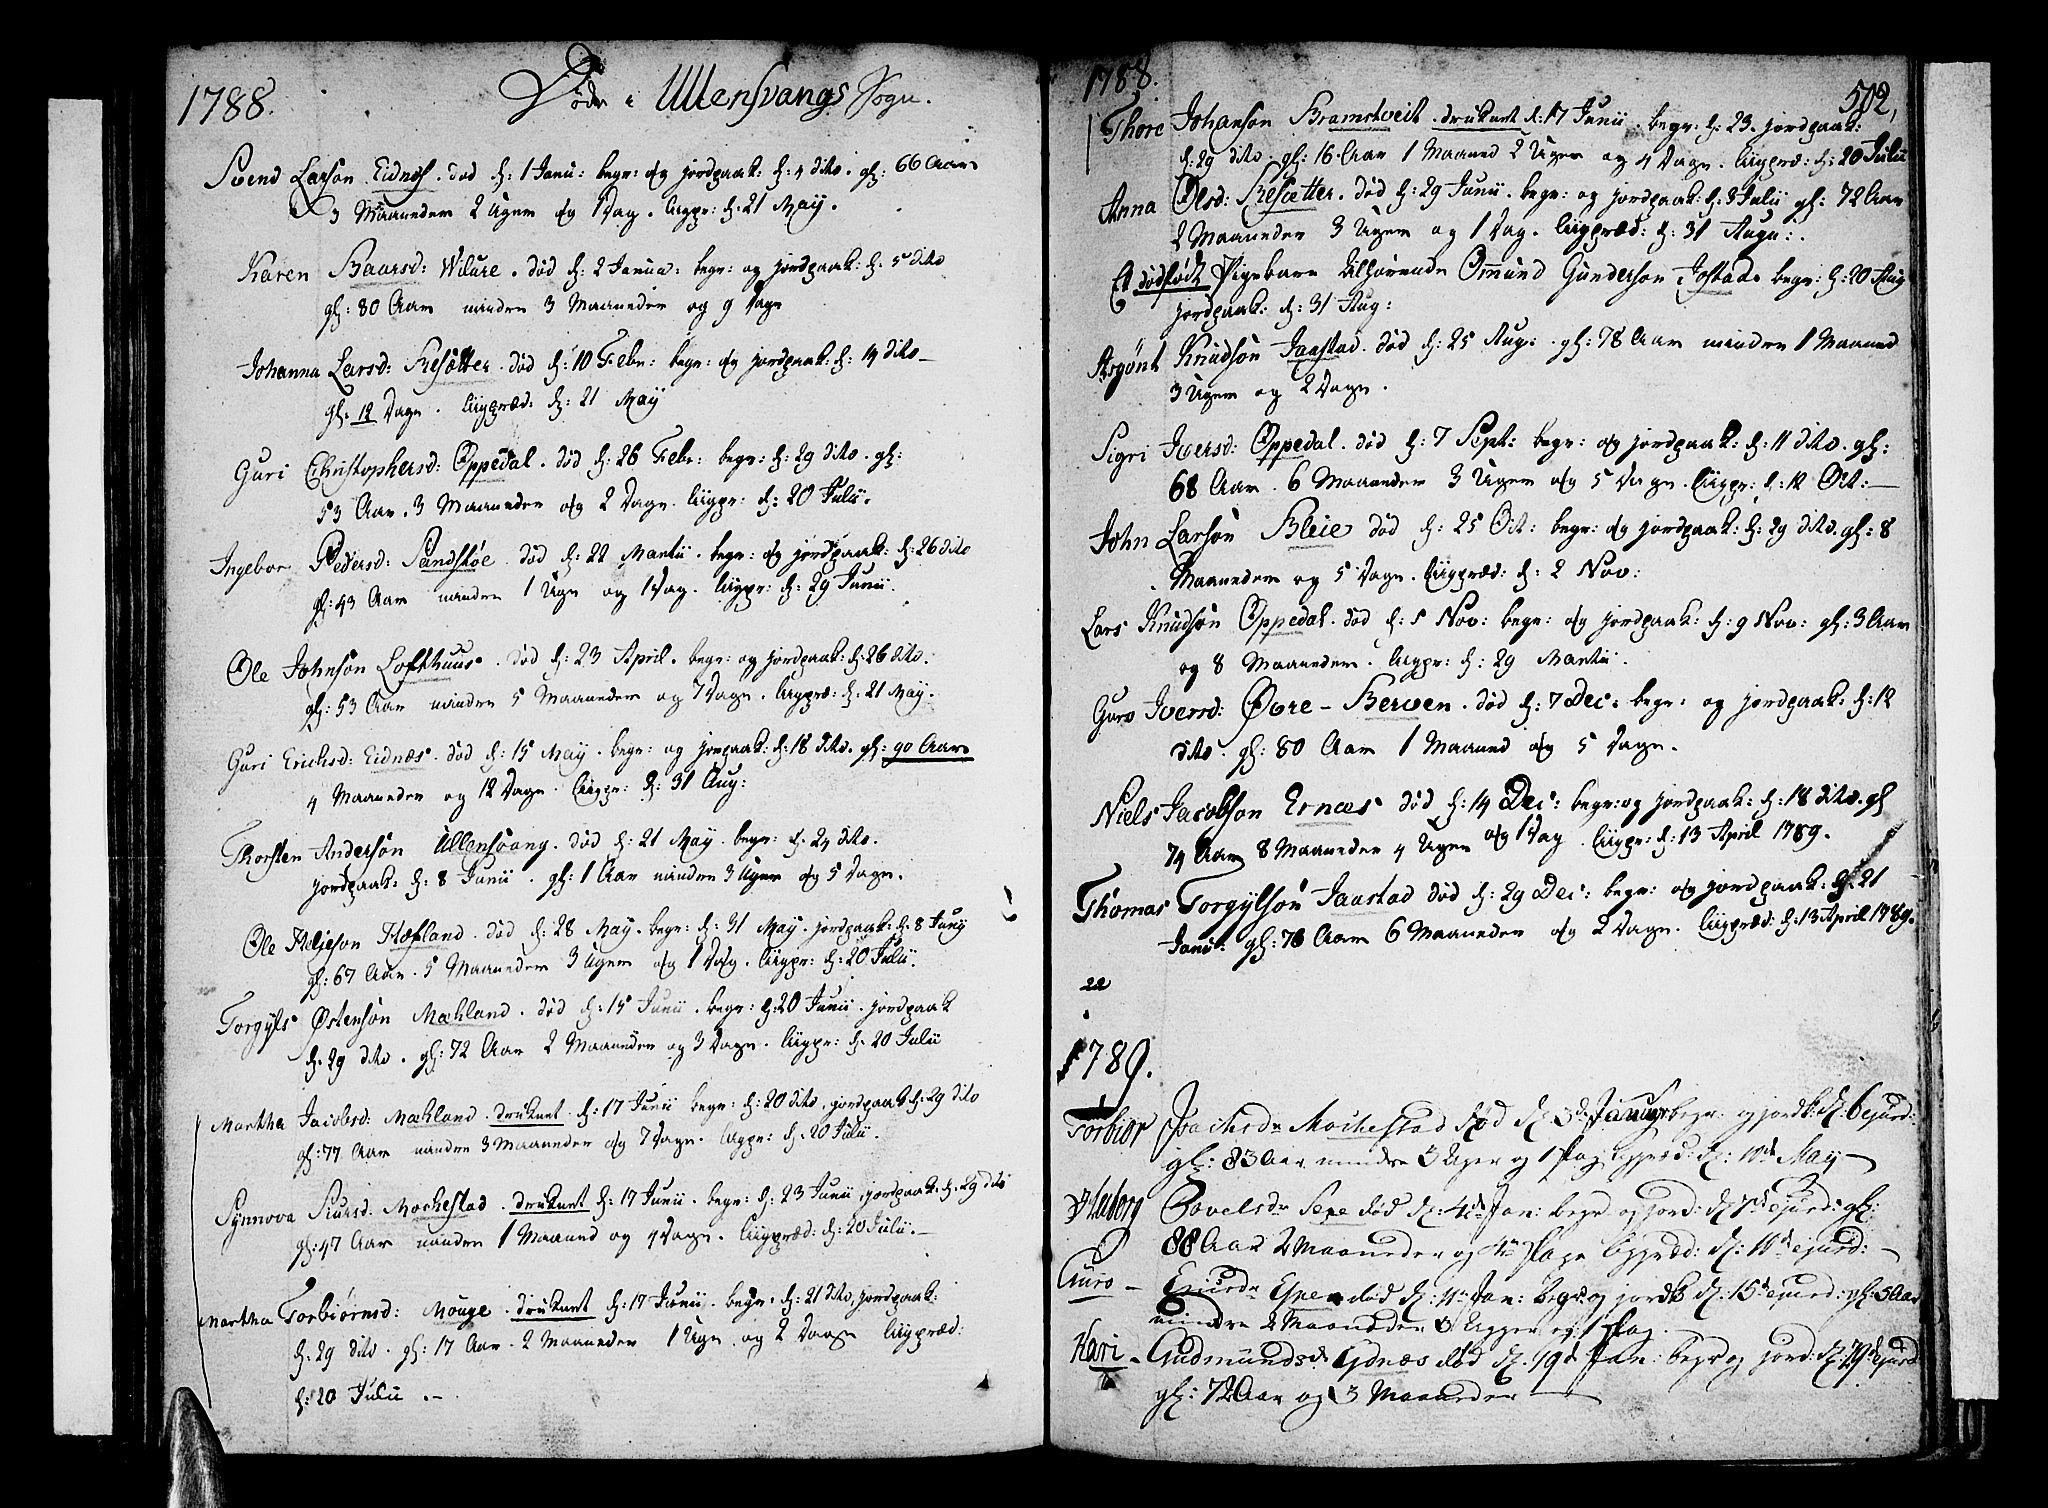 1788. Døde i Ullensvangs Sogn.
Svend Larson Eidnæs. død d: 1 Janu: begr: og jordpaak: d: 4 dito. gl: 66 Aar
3 Maaneder 2 Uger og 1 Dag. liigpr: d: 21 May.
Karen Baarsd: Wilure. død d: 2 Janua: begr: og jordpaak: d: 5 dito
gl: 80 Aar mindre 3 Maaneder og 9 Dage
Johanna Larsd: Resætter. død d: 10 Febr: begr: og jordpaak: d: 14 dito
gl: 12 Dage. liigpræd: d: 21 May
Guri Christophersd: Oppedal. død d: 26 Febr: begr: d: 29 dito. gl:
53 Aar. 3 Maaneder og 2 Dage. liigpr: d: 20 Julii.
Ingebor Pedersd: Sandstøe. død d: 22 Martii. begr: og jordpaak: d: 26 dito
gl: 43 Aar mindre 1 Uge og 1 Dag. liigpr: d: 29 Junii.
Ole Johnson Lofthuus. død d: 23 April. begr: og jordpaak: d: 26 dito.
gl: 53 Aar mindre 5 Maaneder og 7 Dage. liigpræ: d: 21 May.
Guri Erichsd: Eidnæs. død d: 15 May. begr: og jorpaak: d: 18 dito. gl: 90 Aar
4 Maaneder og 12 Dage. liigpr: d: 31 Aug:
Thorsten Anderson Ullensvang. død d: 21 May. begr: d: 24 dito.
jordpaak: d: 8 Junii. gl: 1 Aar mindre 3 Uger og 5 Dage.
Ole Heljeson Hæfland. død d: 28 May. begr: d: 31 May. jordpaak: d: 8 Junij
gl: 67 Aar. 5 Maaneder 3 Uger og 1 Dag. liigpr: d: 20 Julii.
Torgyls Østenson Mækland. død d: 15 Junii. begr: d: 20 Junii. jordpaak
d: 29 dito. gl: 72 Aar 2 Maaneder og 3 Dage. liigpr: d. 20 Julii
Martha Jacobsd: Mækland. druknet. d: 17 Junii begr: d: 20 dito. jordpaak d: 29 dito
gl: 77 Aar mindre 3 Maaneder og 7 Dage. liigpr: d. 20 Julii.
Synnova Siursd: Mochestad. druknet d: 17 Junii. begr: d: 23 Junii. jordpaak: d: 29 dito
gl: 47 Aar mindre 1 Maaned og 4 Dage. liigpræd: d: 20 Julii.
Martha Torbiørnsd: Mouge. druknet d: 17 Junii. begr: d: 21 dito, jordpaak:
d: 29 dito. gl: 17 Aar. 2 Maaneder 1 Uge og 2 Dage liigpræd:
d: 20 Julii.
1788. 502,
Thore Johanson Bramstveit. druknet d: 17 Junii. begr: d: 23. jordpaak:
d: 29 dito. gl: 16 Aar 1 Maaned 2 Uger og 4 Dage. liigpræ: d: 20 Julii
Anna Olsd: Resætter. død d: 29 Junii. begr: og jordpaak: d: 3 Julii gl: 72 Aar
2 Maaneder 3 Uger og 1 Dag. liigpræd: d: 31 Augu:.
Et dødfødt Pigebarn tilhørende Omund Gunderson Jostad. begr: d: 20 Aug
jordpaak: d: 31 Aug:
Asgønt Knudson Jaastad. død d: 25 Aug: gl: 78 Aar mindre 1 Maaned
3 Uger og 2 Dage.
Sigri Iversd: Oppedal. død d: 7 Sept: begr: og jordpaak: d: 11 dito. gl:
68 Aar. 6 Maaneder 3 Uger og 5 Dage. liigpr: d: 12 Oct:
John Larson Bleie død d: 25 Oct: begr: og jordpaak: d: 29 dito. gl: 8
Maaneder og 5 Dage. liigpræd: d: 2 Nov:
Lars Knudson Oppedal. død d: 5 Nov: begr: og jordpaak: d: 9 Nov: gl: 3 Aar
og 8 Maaneder. liigpr: d: 29 Martii.
Guro Iversd: Øvre-Berven. død d: 7 Dec: begr: og jordpaak: d: 12
dito. gl: 80 Aar 1 Maaned og 5 Dage.
Niels Jacobson Ernæs død d: 14 Dec: begr: og jordpaak: d: 18 dito. gl
74 Aar 8 Maaneder 4 Uger og 1 Dag. liigpr: d: 13 April 1789.
Thomas Torgylson Jaastad død d: 29 Dec: begr: og jordpaak: d: 21
Janu: gl: 76 Aar 6 Maaneder og 2 Dage. liigpræd: d: 13 April 1789.
22
1789.
Torbiør Isachsdr Mochestad død d: 3d Januar begr: og jordk: d: 6 ejusd:
gl: 83 Aar mindre 3 Uger og 1 Dag ligpræd: d: 10de May
Povelsdr Sexe død d: 4de Jan: begr og jord: d: 7de ejusd: gl:
88 Aar 2 Maaneder og Dage ligpræd: d: 10de ejusd:
Guro Espe død d: 11te Jan: begr: og jordk d: 15de ejusd: gl: 3 Aar
mindre 2 Maaneder 3 Uger og 1 Dag.
Kari Gudmundsd. Eydnæs død d. 19de Jan: begr og jord: d: 29de ejusd
gl: 72 Aar og 3 Maaneder